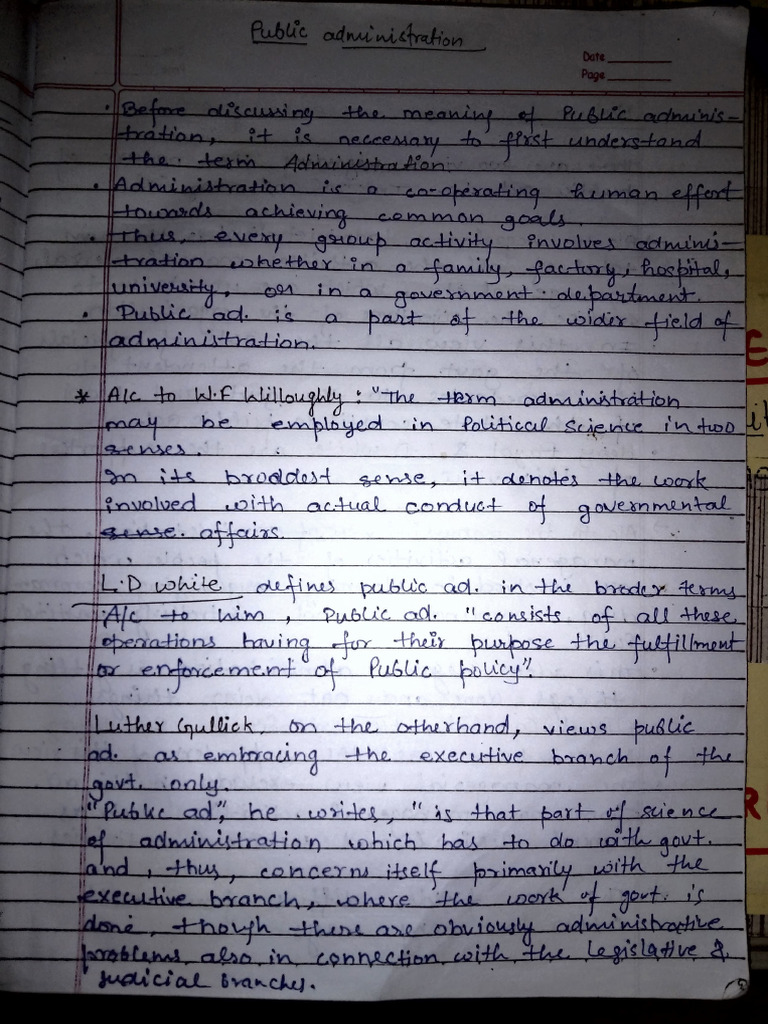 Public administration
Date
Page
• Before discussing the meaning of Public adminis-
tration, it is neccessary to first understand
the term Administration.
• Administration is a co-operating human effort
towards achieving common goals.
• Thus, every group activity involves adminis-
tration whether in a family, factory, hospital,
university, or in a government department.
• Public ad. is a part of the wider field of
administration.
* A/c to W.F Willoughly : "The term administration
may be employed in Political Science in two
senses.
In its broddest sense, it denotes the work
involved with actual conduct of governmental
sense. affairs.
L.D white defines public ad. in the broder terms
A/c to him, Public ad. "consists of all these
operations having for their purpose the fulfillment
or enforcement of Public policy".
Luther Gullick, on the otherhand, views public
ad. as embracing the executive branch of the
govt. only.
"Public ad", he writes, "is that part of science
of administration which has to do with govt.
and, thus, concerns itself primarily with the
executive branch, where the work of govt. is
done, though there are obviously administrative
problems also in connection with the Legislative &
Judicial branches.